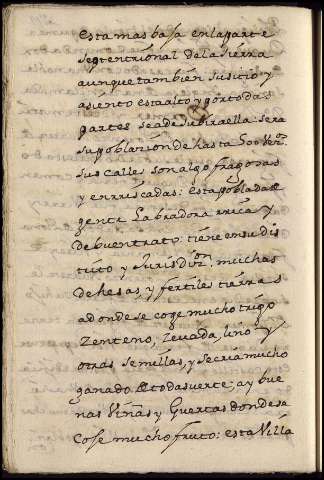 esta mas baja en la parte
septentrional de la sierra
aunque tambien su sitio y
asiento esta alto y por todas
partes se a de subir a ella sera
su poblazion de hasta 500 Vez.os
sus calles son algo fragosas
y enrriscadas: esta poblada de
gente Labradora rrica y
de buen trato. tiene en su dis
tricto y Jurisdi.on muchas
dehesas, y fertiles tierras
adonde se coge mucho trigo
Zenteno, Zevada, lino y
otras semillas, y se cria mucho
ganado de toda suerte; ay bue
nas Viñas y Guertas donde se
Coje mucho fruto: esta Villa